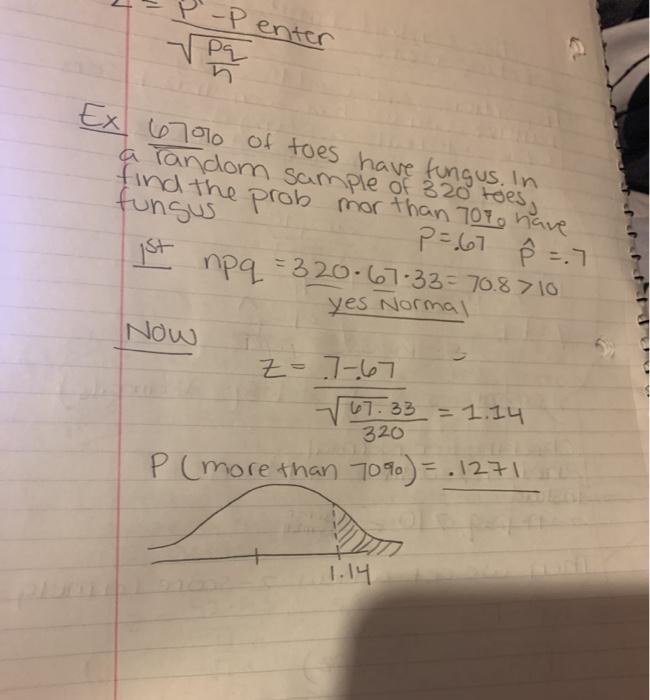 Z = p̂ - p enter
√ pq
n
Ex 67% of toes have fungus. In
a random sample of 320 toes,
find the prob mor than 70% have
fungus
P=.67 p̂ =.7
1st npq = 320·.67·.33 = 70.8 > 10
yes Normal
Now
Z = .7-.67
√ .67·.33 = 1.14
320
P (more than 70%) = .1271
1.14